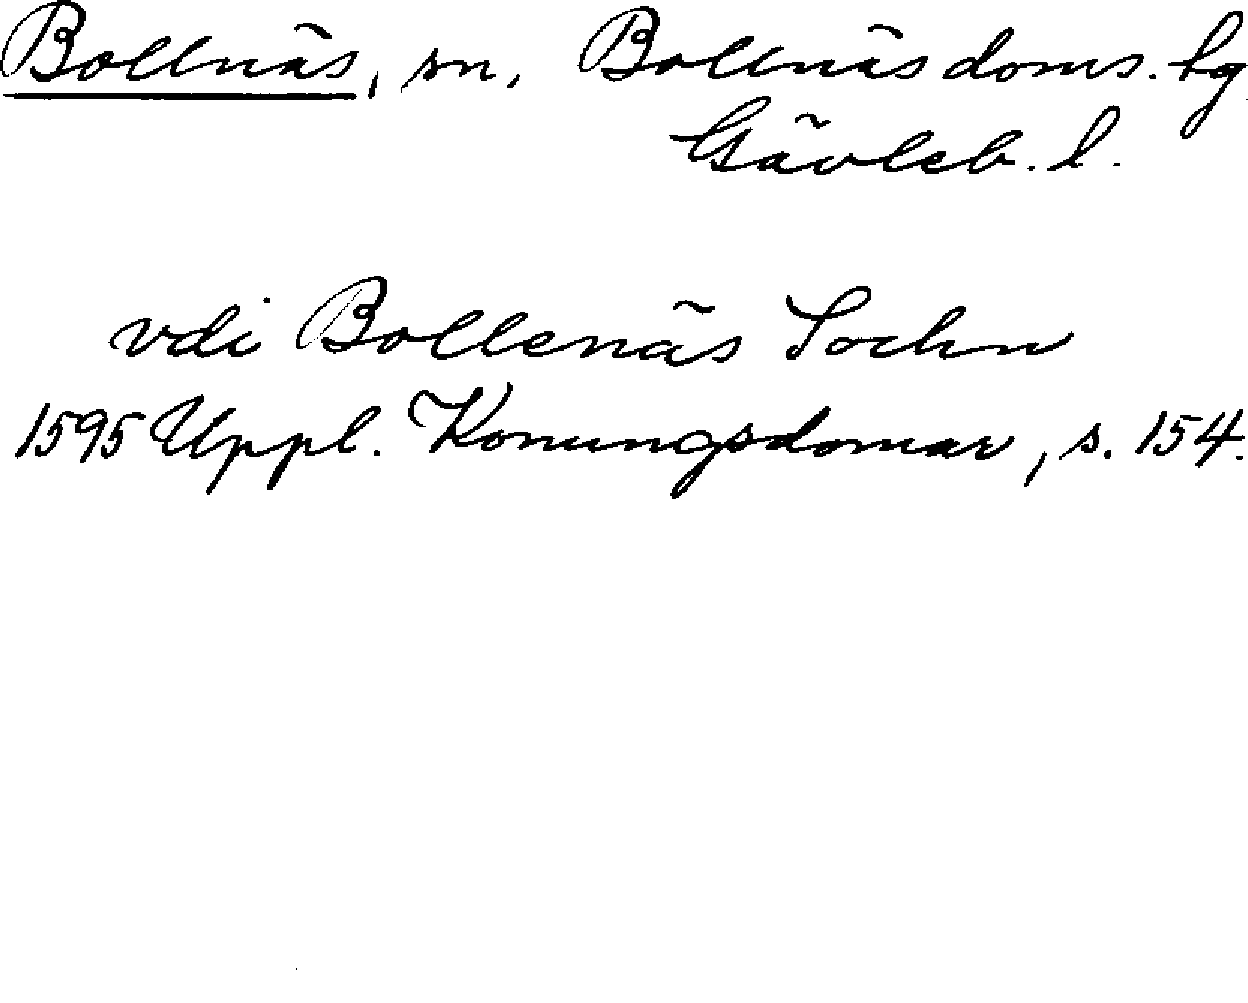 Bollnäs, sn, Bollnäs doms. tg
Gävleb. l.
vdi Bollenäs Sochn
1595 Uppl. Konungsdomar, s. 154.